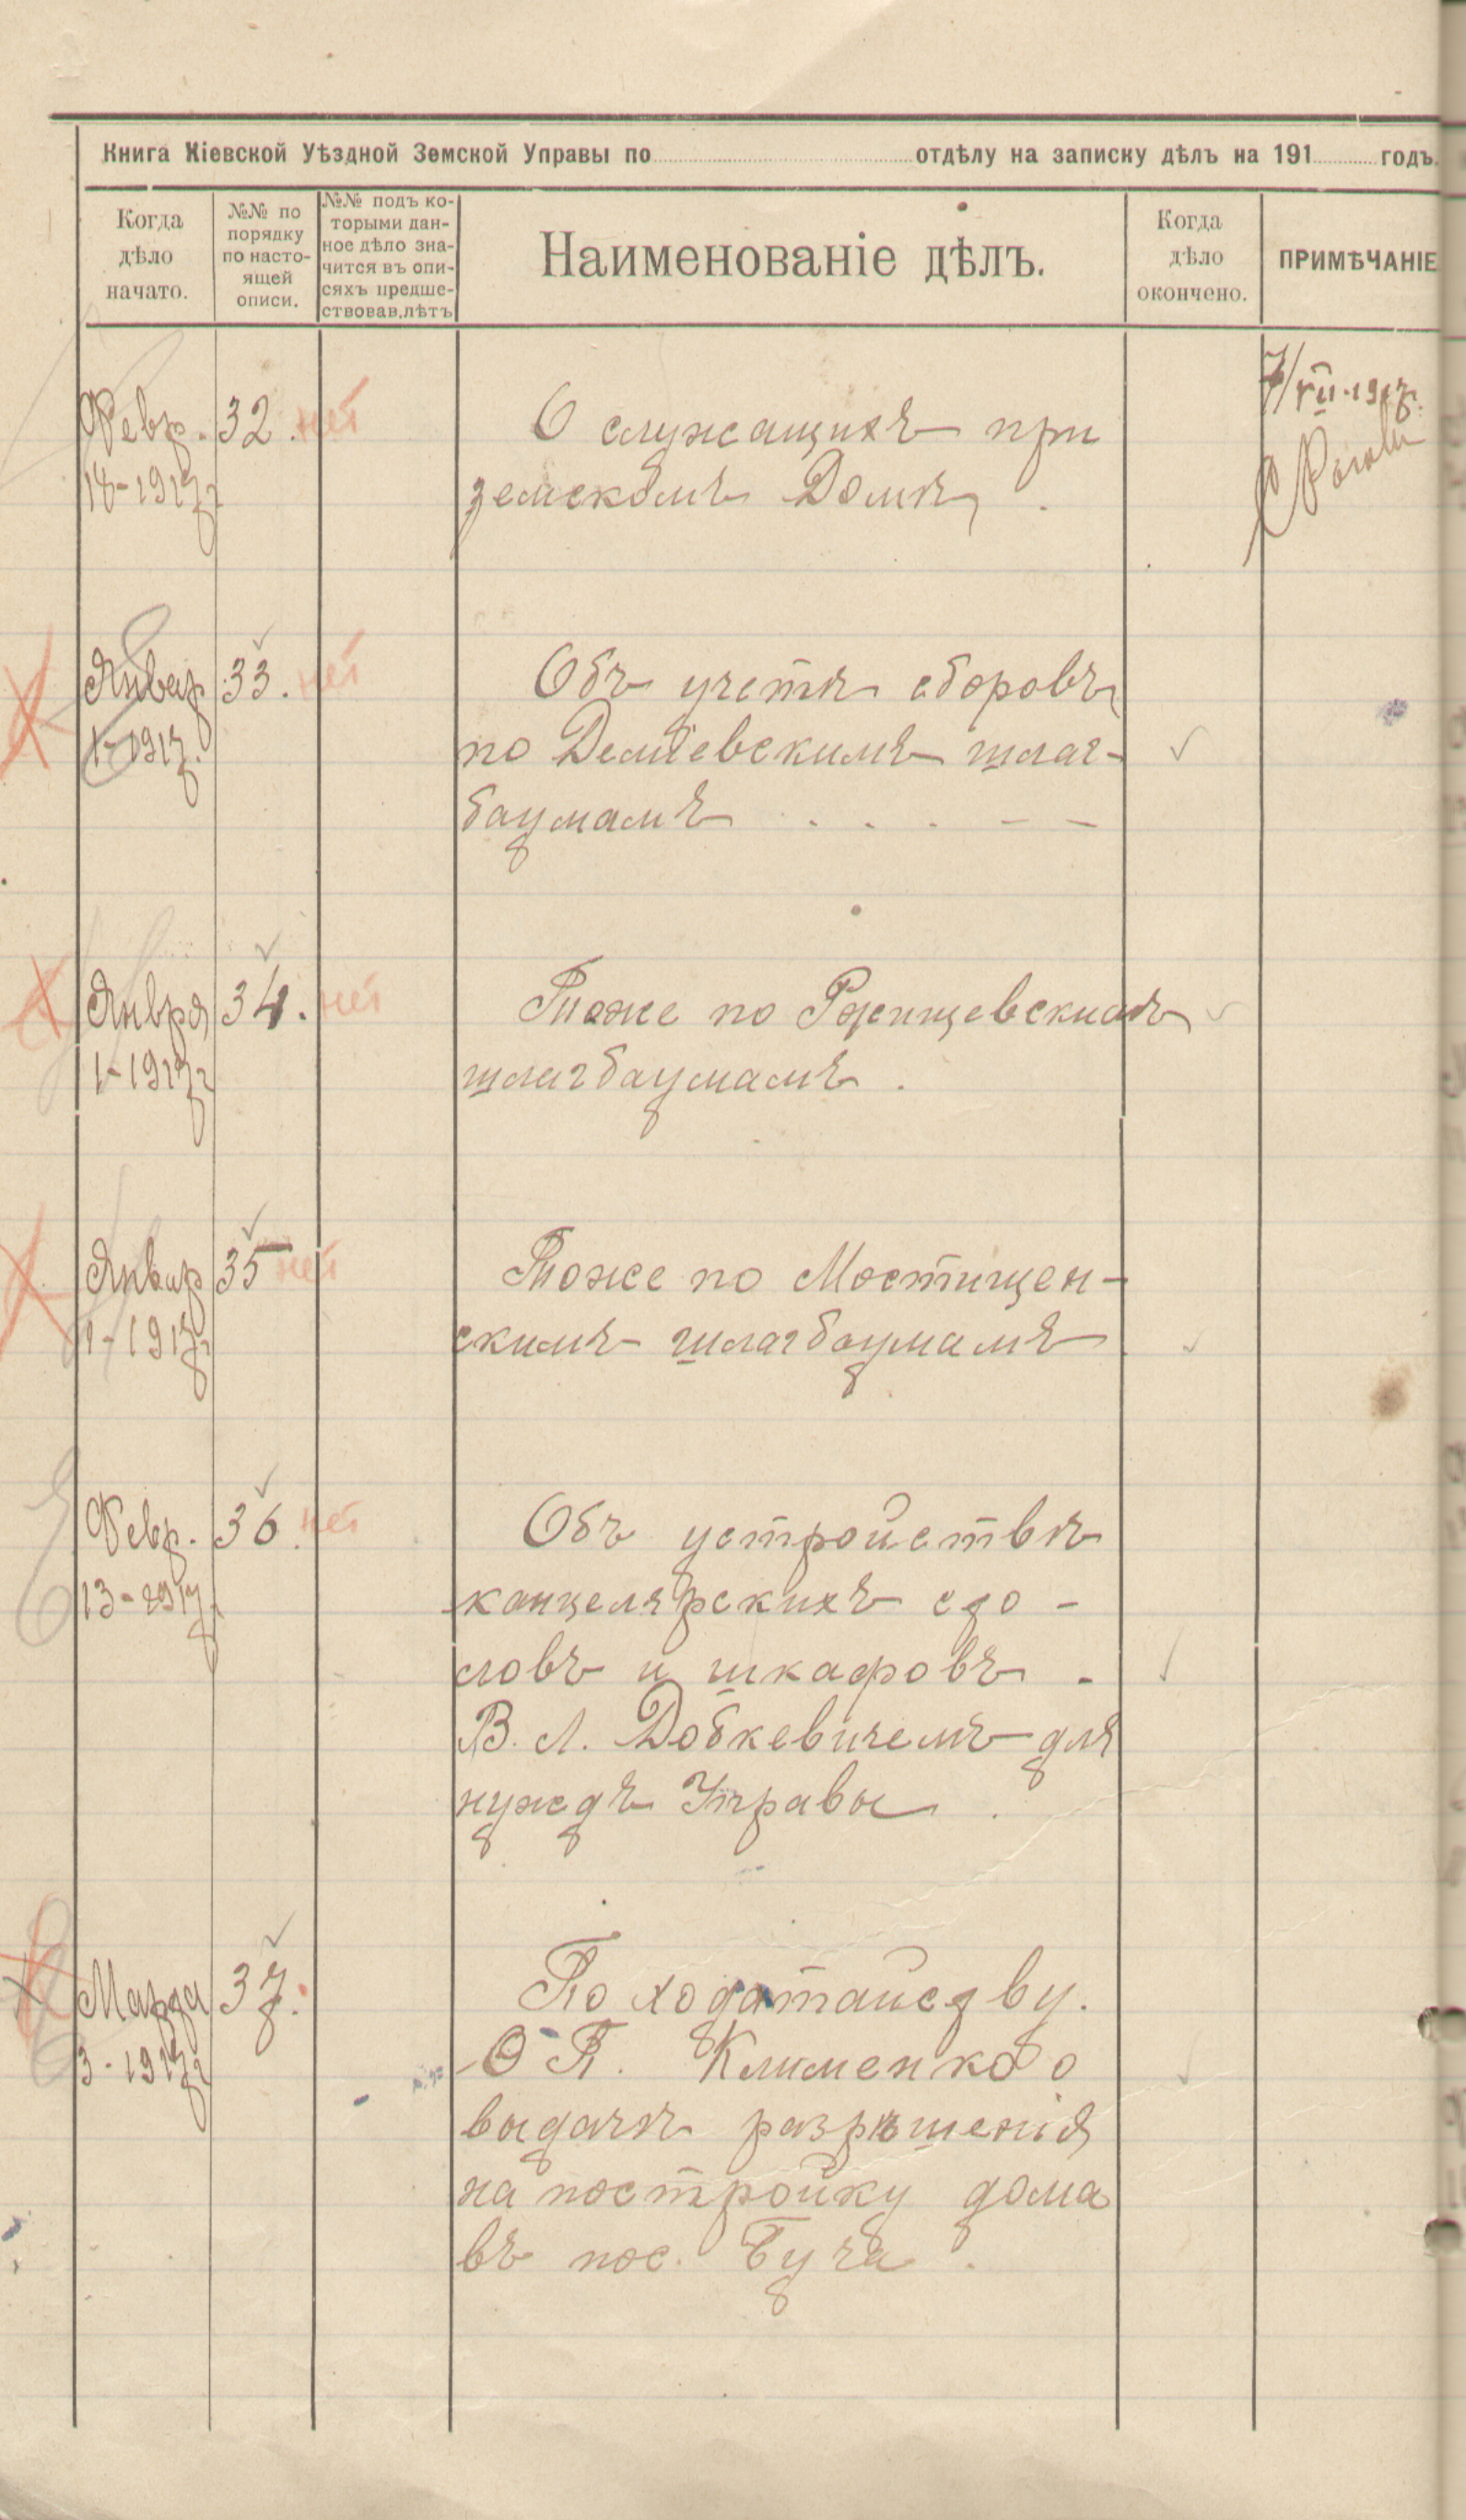 Книга Кіевской Уѣздной Земской Управы по отдѣлу на записку дѣлъ на 191 годъ.
Когда
дѣло
начато.
№№ по
порядку
по насто-
ящей
описи.
№№ подъ ко-
торыми дан-
ное дѣло зна-
чится въ опи-
сяхъ предше-
ствовав.лѣтъ
Наименованіе дѣлъ.
Когда
дѣло
окончено.
ПРИМѢЧАНІЕ
7/VII-1917.
Февр. 32. нет О служащихъ при
18-1917г. земскомъ Домѣ.
Январ 33. нет Объ учетѣ сборовъ
1-1917. по Деміевскимъ шлаг-
баумамъ . . . - -
Января 34. нет Тоже по Ржищевскимъ
1-1917г шлагбаумамъ.
Январ 35 нет Тоже по Мостищен-
1-1917. скимъ шлагбаумамъ
Февр. 36. нет Объ устройствѣ
13-1917. канцелярскихъ сто-
ловъ и шкафовъ -
В. Л. Добкевичемъ для
нуждъ Управы.
Марта 37. По ходатайству.
3-1917г Ѳ П. Клименко о
выдачѣ разрѣшенія
на постройку дома
въ пос. Буча.